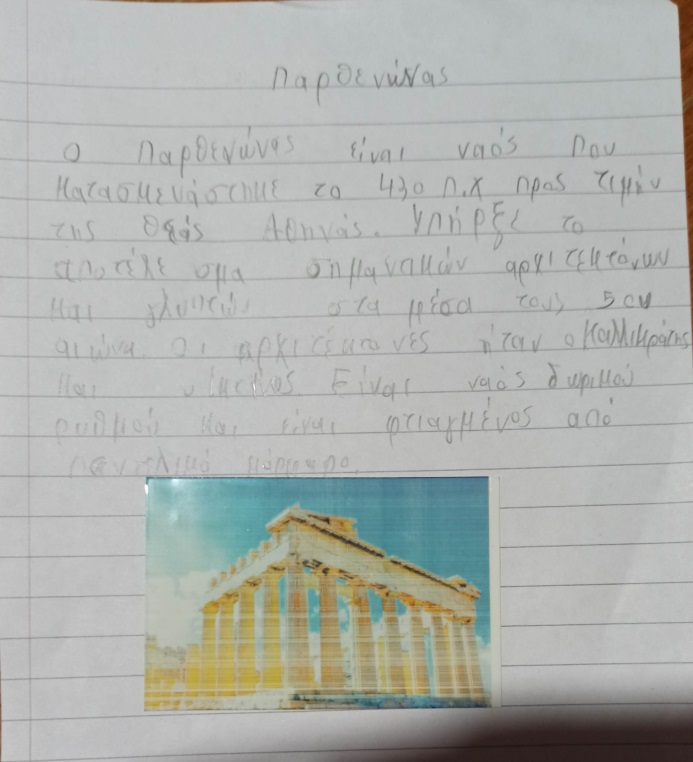 Παρθενώνας
Ο Παρθενώνας είναι ναός που
κατασκευάστηκε το 430 π.χ προς τιμήν
της θεάς Αθηνάς. Υπήρξε το
αποτέλεσμα σημανακών αρχιτεκτόνων
και γλυπτών στα μέσα τους 5ου
αιώνα. Οι αρχιτέκτονες ήταν ο Καλλικράτης
και Ικτίνος. Είναι ναός δωρικού
ρυθμού και είναι φτιαγμένος από
πεντελικό μάρμαρο.